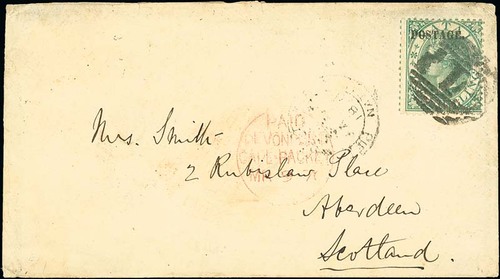 POSTAGE.
PAID
Mrs. Smith
2 Rubislaw Place
Aberdeen
Scotland.